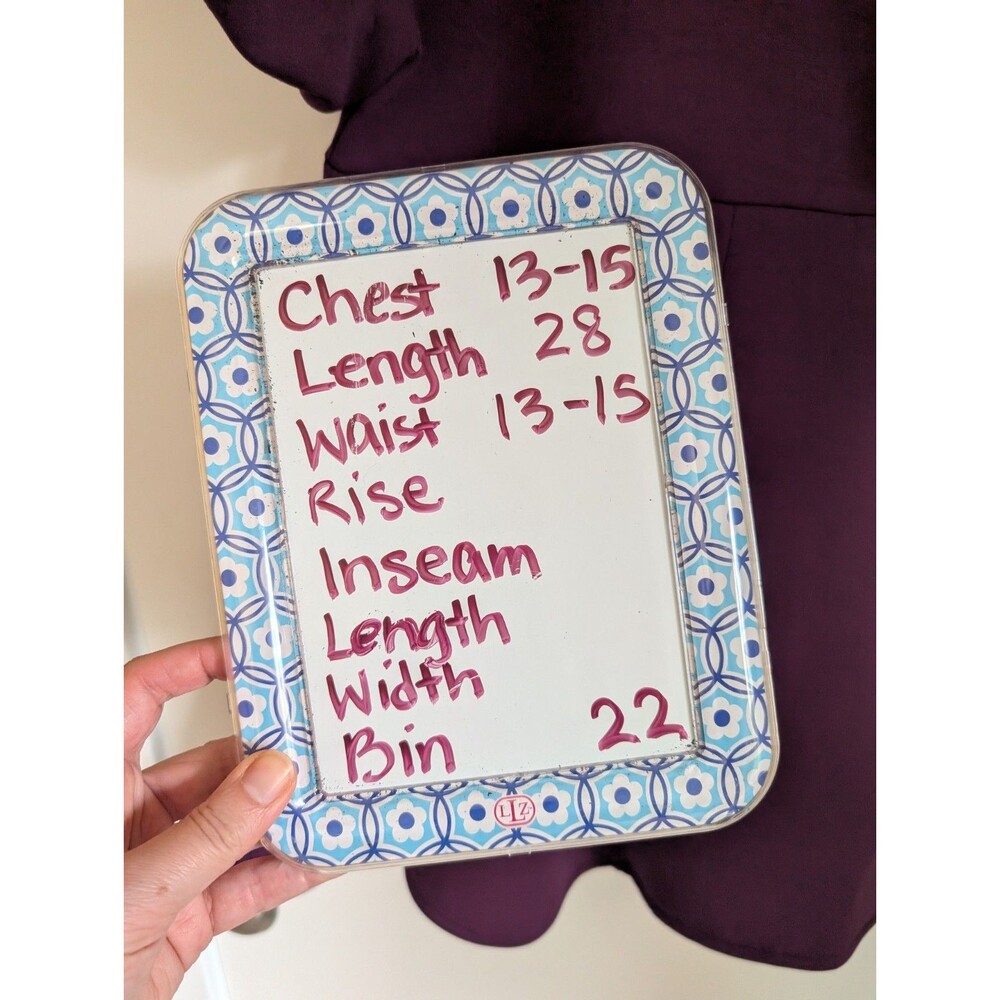 Chest 13-15
Length 28
Waist 13-15
Rise
Inseam
Length
Width
Bin 22
LLZ